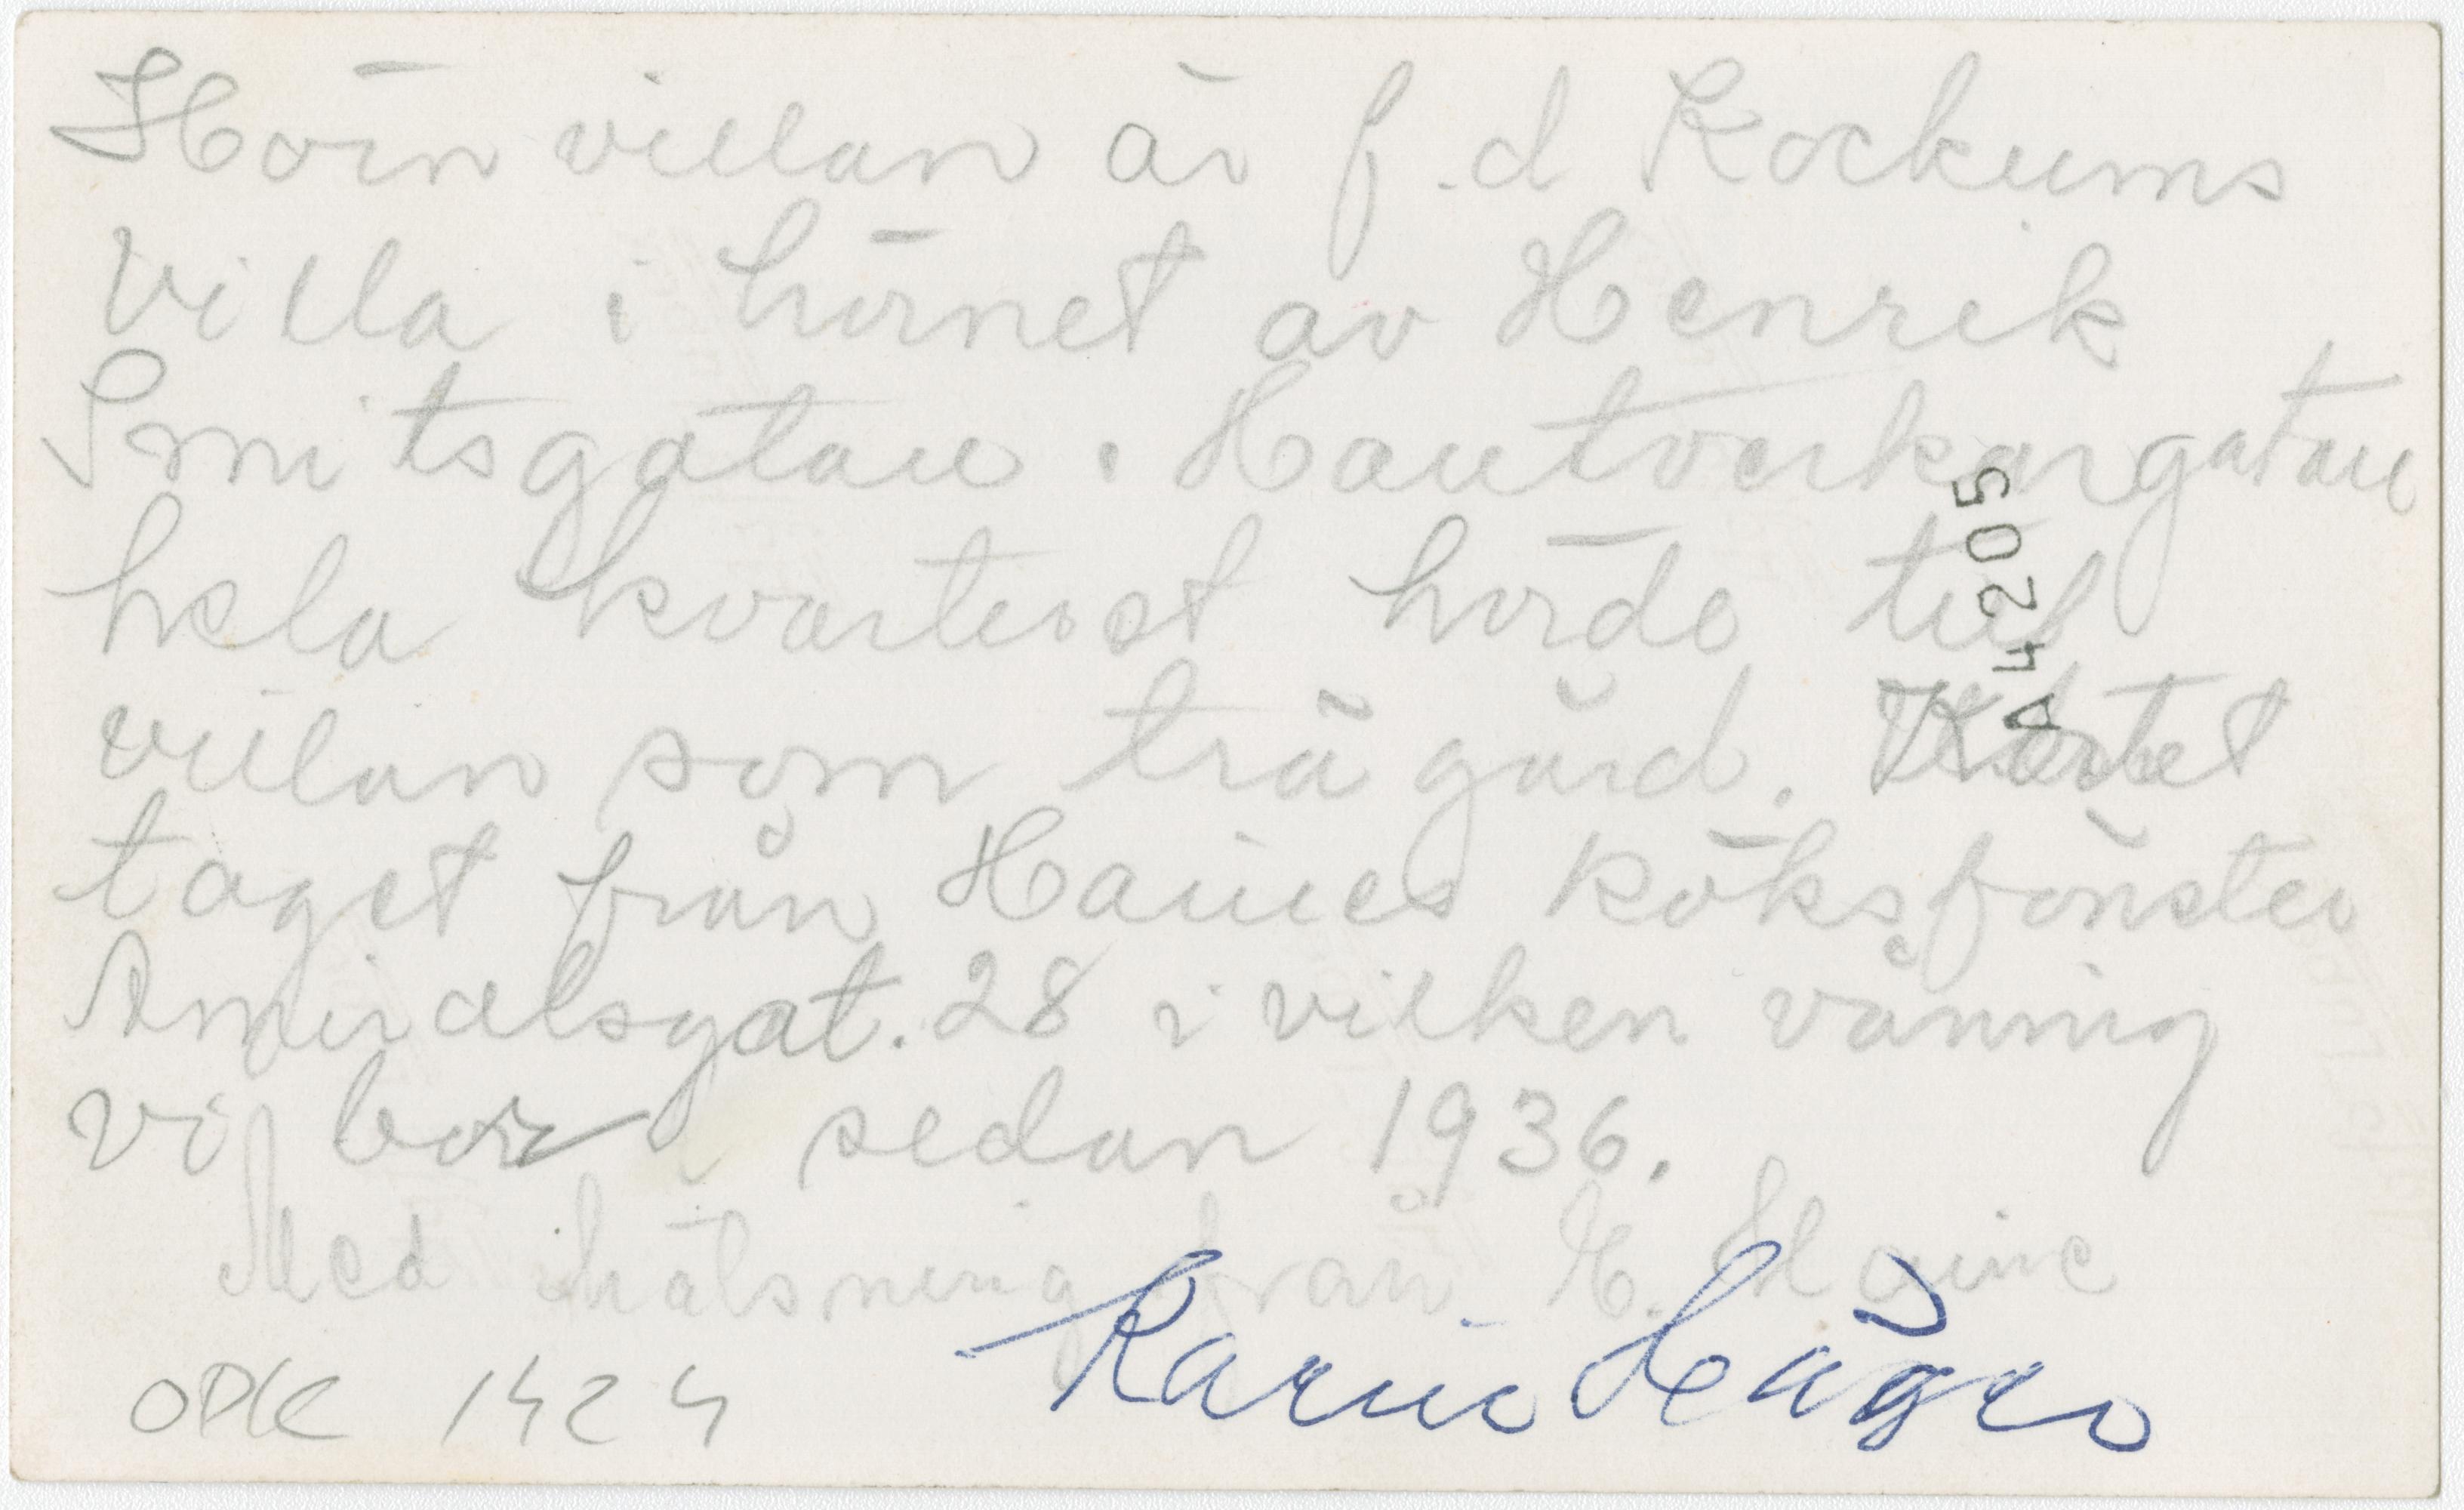 Hörn villan är f.d Kockums
villa i hörnet av Henrik
Smitsgatan . Hantverkargatan
hela kvarteret hörde till
villan som trägård. Kortet
taget från Haines köksfönster
Amiralsgat. 28 i vilken våning
vi bor sedan 1936.
Med hälsning från E. Haine
Karin
ODK 1424
A4205